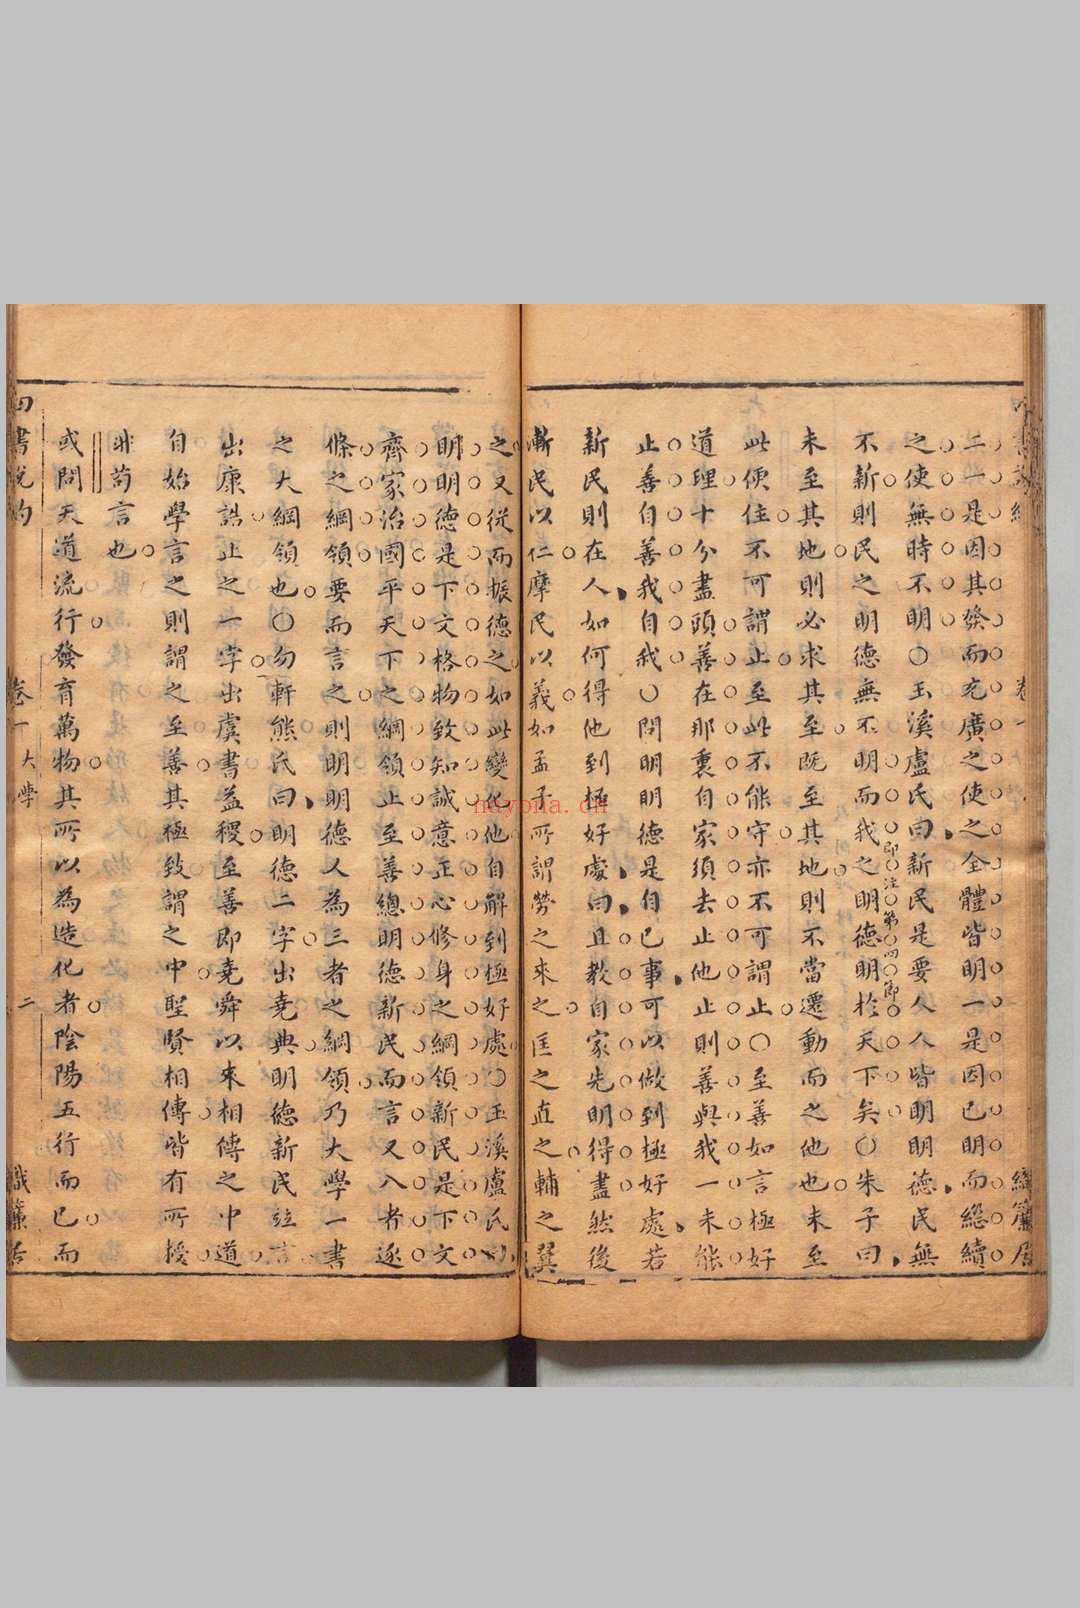 二一是因其發而充廣之使之全體皆明一是因已明而緦續
之使無時不明〇玉溪盧氏曰新民是要人人皆明明德民無
不新則民之明德無不明而我之明德明於天下矣〇朱子曰
即注第四節
未至其地則必求其至既至其地則不當遷動而之他也未至
此便住不可謂止至此不能守亦不可謂止〇至善如言極好
道理十分盡頭善在那裏自家須去止他止則善與我一未能
止善自善我自我〇問明明德是自己事可以做到極好處若
新民則在人如何得他到極好處曰且教自家先明得盡然後
漸民以仁摩民以義如孟子所謂勞之來之匡之直之輔之翼
之又從而振德之如此變化他自解到極好處〇玉溪盧氏曰
明明德是下文格物致知誠意正心修身之綱領新民是下文
齊家治國平天下之綱領止至善總明德新民而言又八者逐
條之綱領要而言之則明明德人為三者之綱領乃大學一書
之大綱領也〇勿軒熊氏曰明德二字出堯典明德新民竝言
出康誥止之一字出虞書益稷至善即堯舜以來相傳之中道
自始學言之則謂之至善其極致謂之中聖賢相傳皆有所授
非苟言也
或問天道流行發育萬物其所以為造化者陰陽五行而已而
四書說約
卷一 大學
二
織簾居
naypila.cn